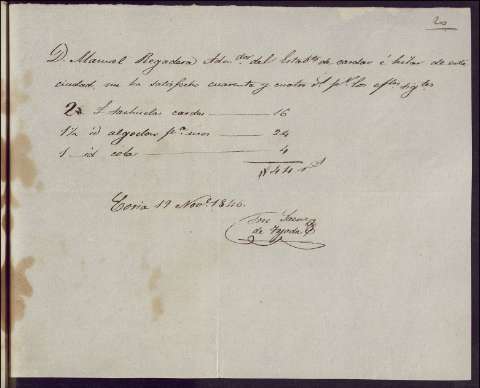 20
D. Manuel Regadera Adm.dor del Establ.to de cardar é hilar de esta
ciudad, me ha satisfecho cuarenta y cuatro r.s p.r los efec.s sig.tes
2 tachuelas cardas 16
1½ id algodon p.a usos 24
1 id cola 4
44 r.s
Coria 19 Nov.e 1846.
José
de